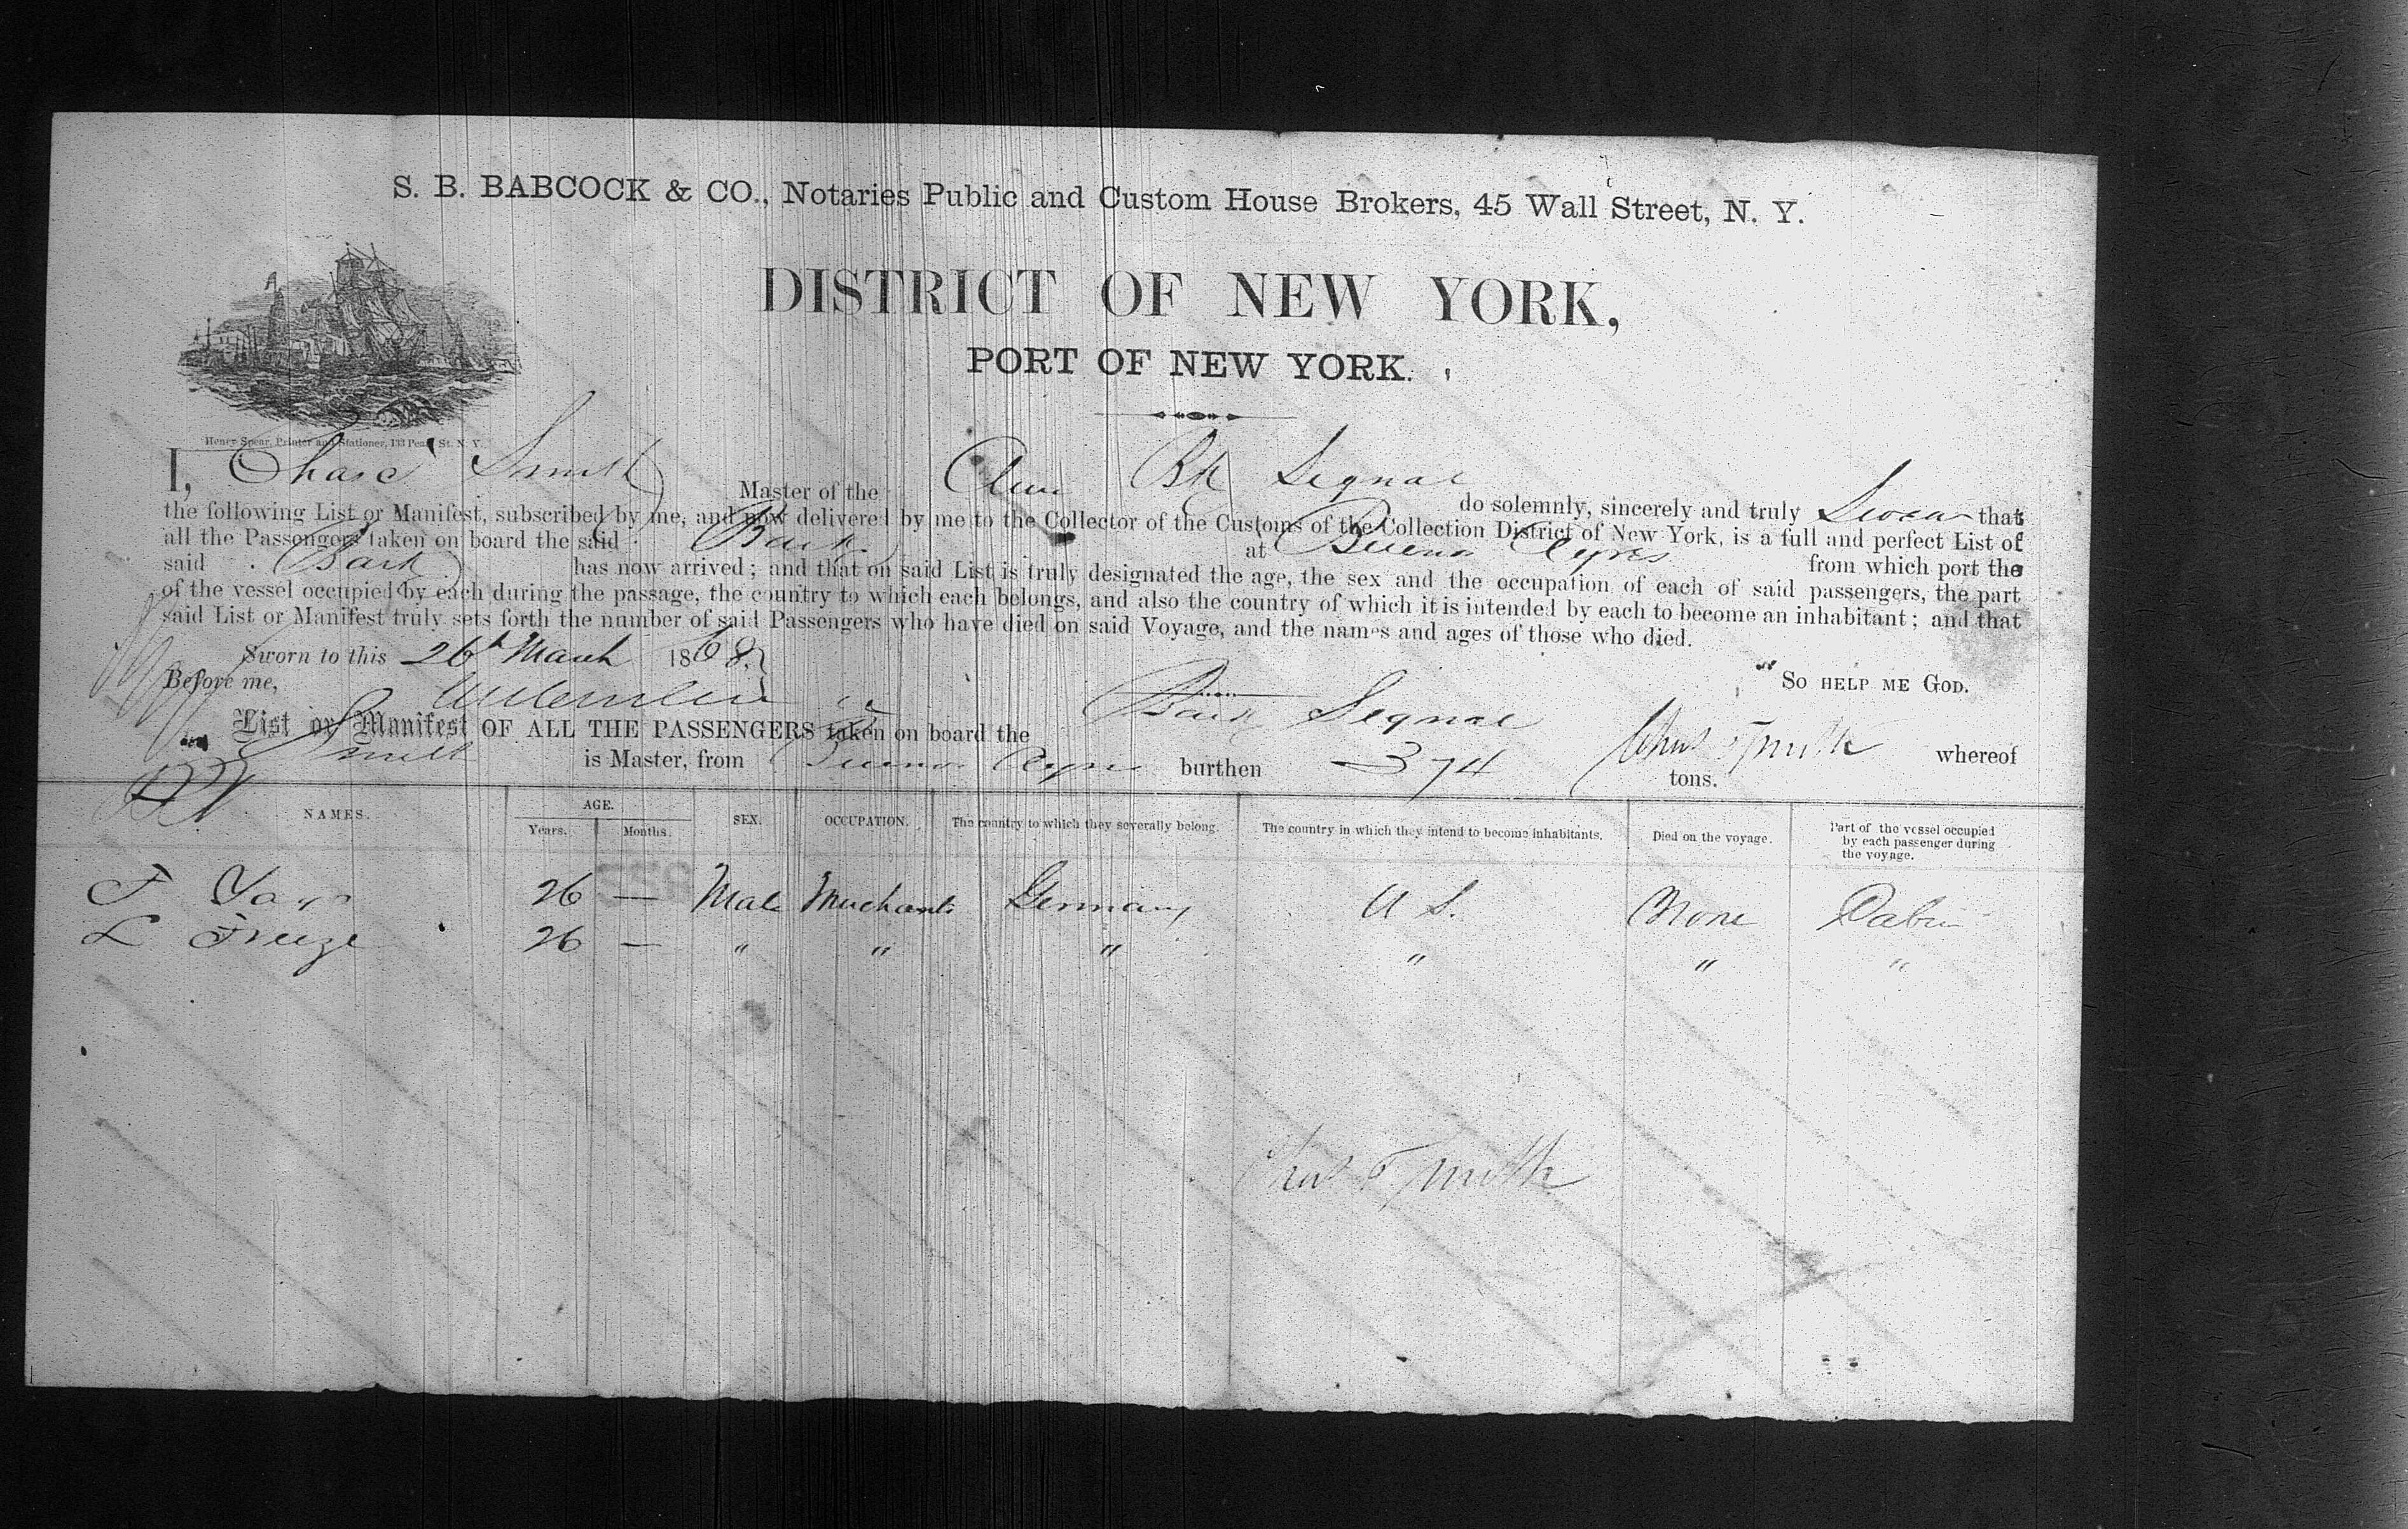 S. B. BABCOCK & CO., Notaries Public and Custom House Brokers, 45 Wall Street, N. Y.
DISTRICT OF NEW YORK,
PORT OF NEW YORK.
Henry Spear, Printer and Stationer, 133 Pearl St. N. Y.
I, Chas Smith Master of the Bk Signal do solemnly, sincerely and truly Swear that
the following List or Manifest, subscribed by me, and now delivered by me to the Collector of the Customs of the Collection District of New York, is a full and perfect List of
all the Passengers taken on board the said Bark at Buenos Ayres from which port the
said Bark has now arrived; and that on said List is truly designated the age, the sex and the occupation of each of said passengers, the part
of the vessel occupied by each during the passage, the country to which each belongs, and also the country of which it is intended by each to become an inhabitant; and that
said List or Manifest truly sets forth the number of said Passengers who have died on said Voyage, and the names and ages of those who died.
Sworn to this 26th March 1868.
Before me,
So HELP ME GOD.
List or Manifest OF ALL THE PASSENGERS taken on board the Bark Signal whereof
Chas Smith
Smith is Master, from Buenos Ayres burthen 374 tons.
NAMES. AGE. Years. Months. SEX. OCCUPATION. The country to which they severally belong. The country in which they intend to become inhabitants. Died on the voyage. Part of the vessel occupied by each passenger during the voyage.
26 — Male Merchants Germany U S. None Cabin
L Freeze 26 — " " " " " "
Chas Smith